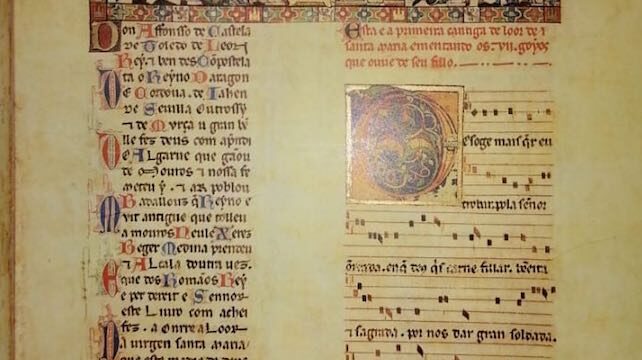 Don Affonsso de Castela
de Toledo de Leon
Rey ⁊ ben des Cõpostela
ta o Reyno Daragon
De Cordoua. de Jahen
de Seuilla Outrossy
⁊ de Murça u gran bẽ
lle fez deus com apndi
Do Algarue que gãou
de Mouros ⁊ nossa fe
meteu y. ⁊ ar poblou
Badallouz q̃ Reyno e
muit antigue que tolleu
a mouros Neule Xeres
Beger Medina prendeu
e Alcala doutra uez.
e que dos Romãos Rey
e per dereit e Sennor
este Liuro com achei
fez. a Onrr e a Loor
Da uirgen santa maria
Esta e a primeira cantiga de loor de s
santa maria ementando os. uii. goyos
que ouue de seu fillo.
Des oge mais q̃r eu
trobar. pola señor
onrrada. enq̃ de9 q̃s carne fillar. bẽeita
⁊ sagrada. por nos dar gran soldada.